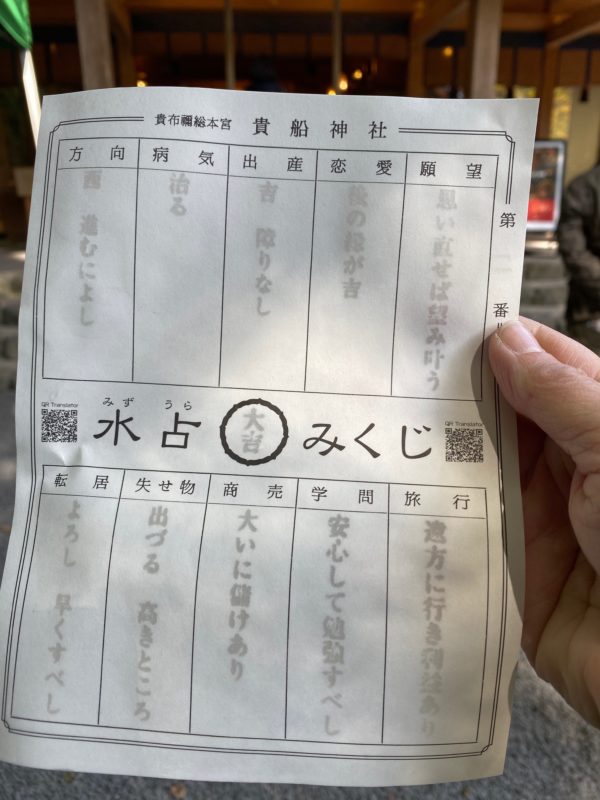 貴布禰総本宮 貴船神社
第 二 番
願望
思い直せば望み叶う
恋愛
後の縁が吉
出産
吉 障りなし
病気
治る
方向
西 進むによし
QR Translator
みず うら
水占 大吉 みくじ
QR Translator
旅行
遠方に行き利益あり
学問
安心して勉強すべし
商売
大いに儲けあり
失せ物
出づる 高きところ
転居
よろし 早くすべし